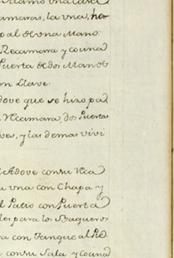 camaras, la vna, ha
pal de vna Mano.
Recamara, y cocina
Puerta de dos Manos
on Llave
dove que se hizo pa
Recamara, dos Puertas
ves, y las demas vivi
Adove con su Rec
vna con Chapa y
Patio con Puerta
para los Baqueros
a con Tanque al P
con su Sala y cocina